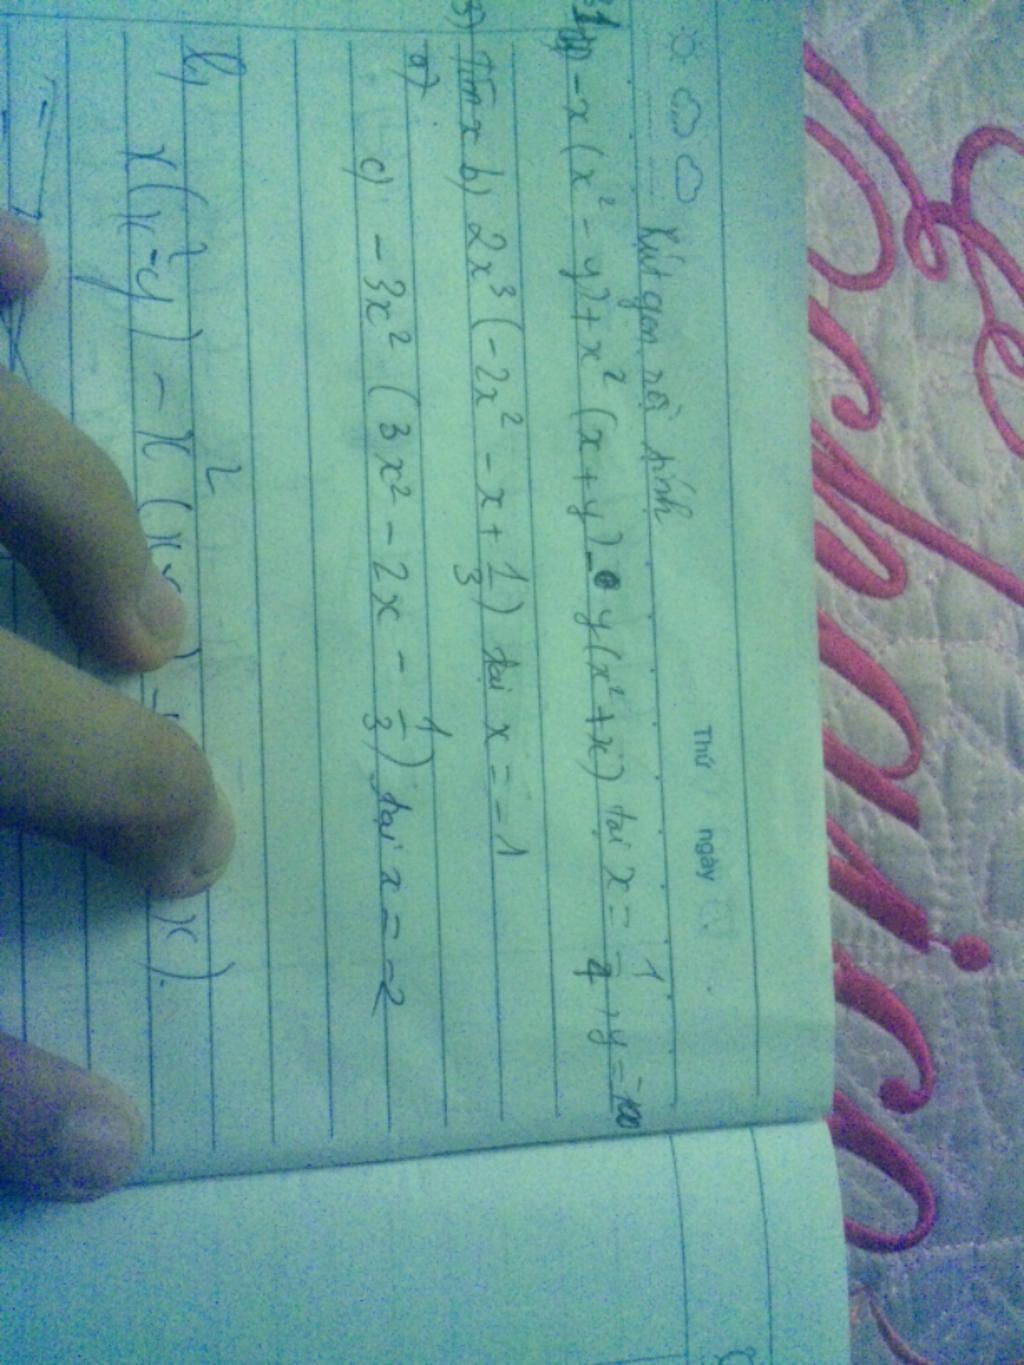 Thứ ngày
Rút gọn rồi tính
-x(x² - y) + x² (x + y) - y(x² + x) tại x = 1/2, y = -100
3) Tìm x b) 2x³ (-2x² - x + 1/3) tại x = -1
a)
c) - 3x² (3x² - 2x - 1/3) tại x = -2
x(x² - y) - x² (x x)